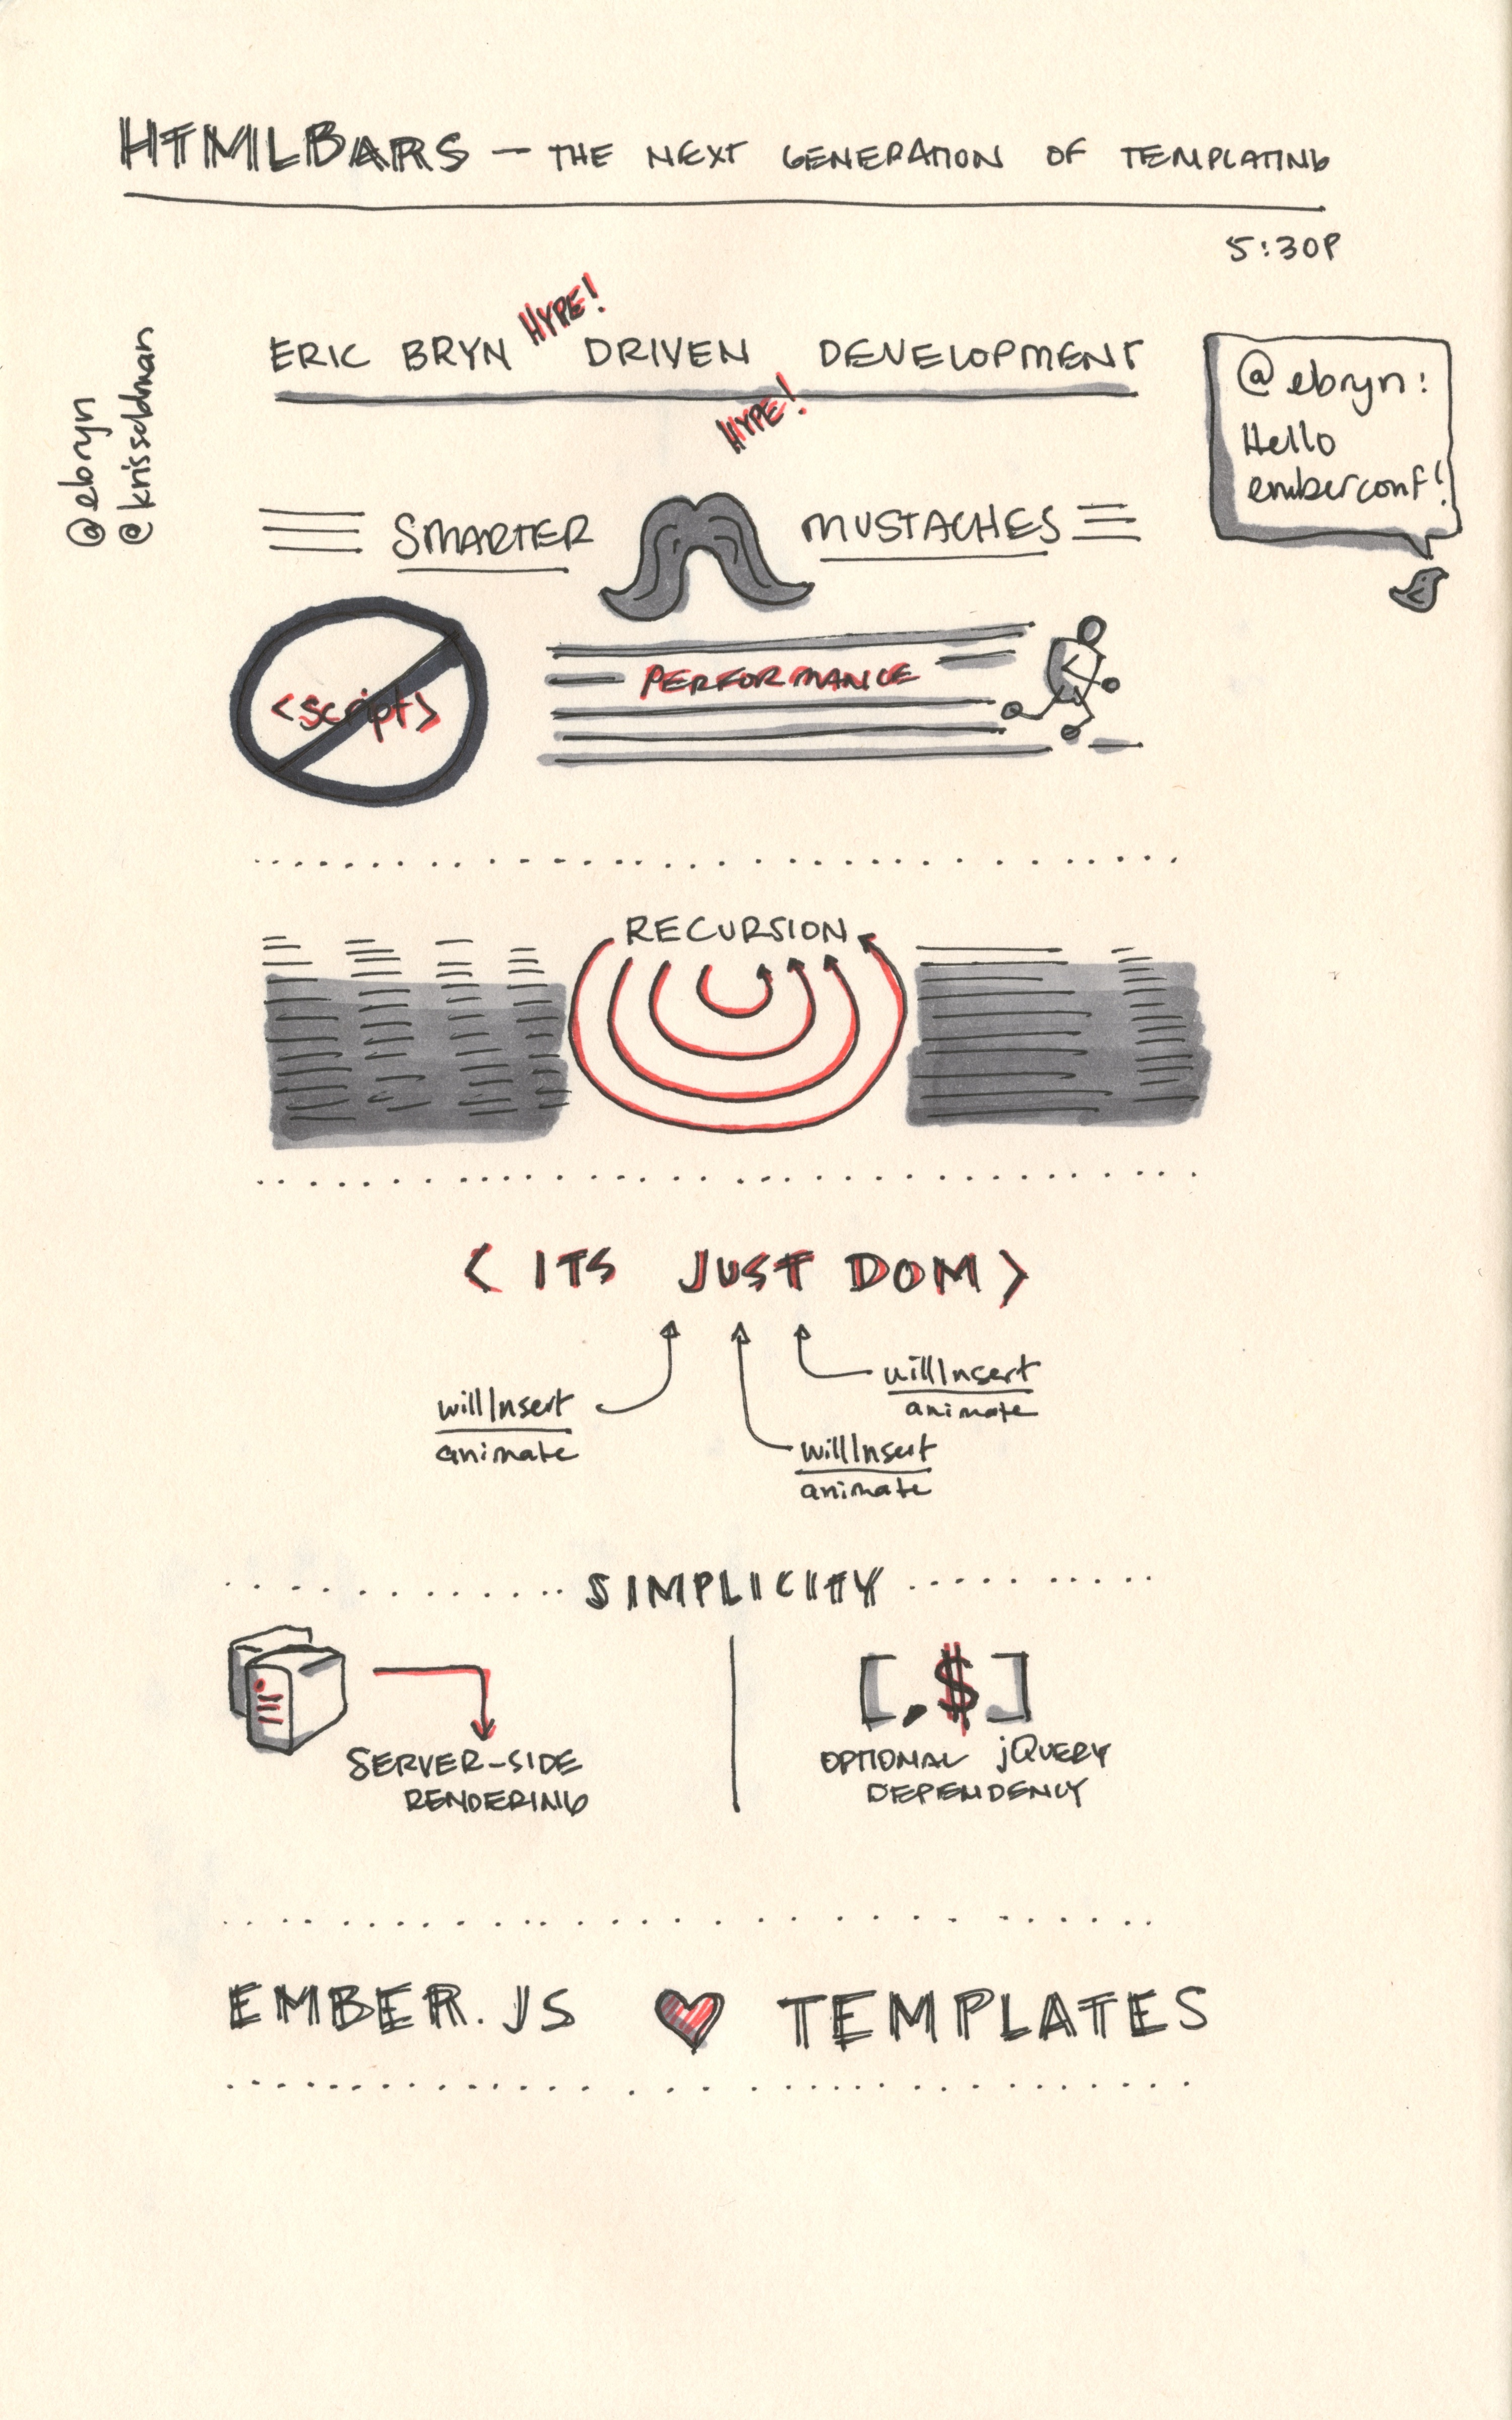 HTMLBARS — THE NEXT GENERATION OF TEMPLATING
5:30P
@ebryn
HYPE!
ERIC BRYN DRIVEN DEVELOPMENT
HYPE!
@ebryn:
Hello
emberconf!
SMARTER MUSTACHES
<script>
PERFORMANCE
RECURSION
< ITS JUST DOM >
willInsert
animate
willInsert
animate
willInsert
animate
SIMPLICITY
SERVER-SIDE
RENDERING
[,$]
OPTIONAL jQUERY
DEPENDENCY
EMBER.JS ♥ TEMPLATES